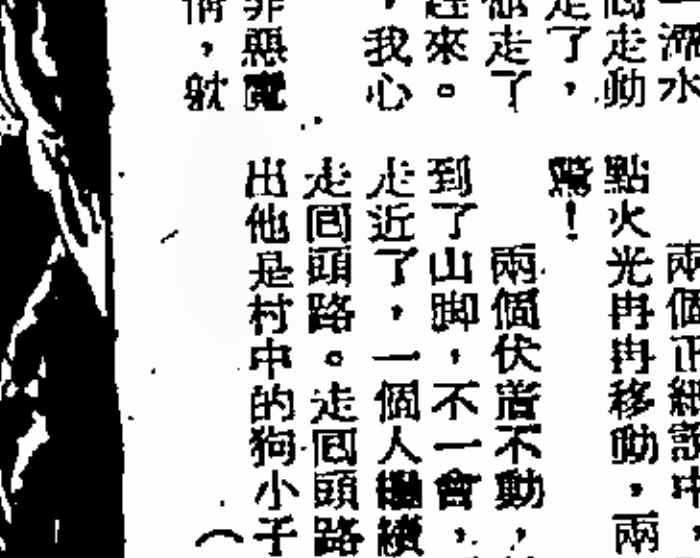 水
走動
走了，
走了
來。
，我心
非惡魔
，就
兩個正細說中，
點火光冉冉移動，兩
驚！
兩個伏着不動，
到了山脚，不一會，
走近了，一個人繼續
走囘頭路。走囘頭路
出他是村中的狗小子
（